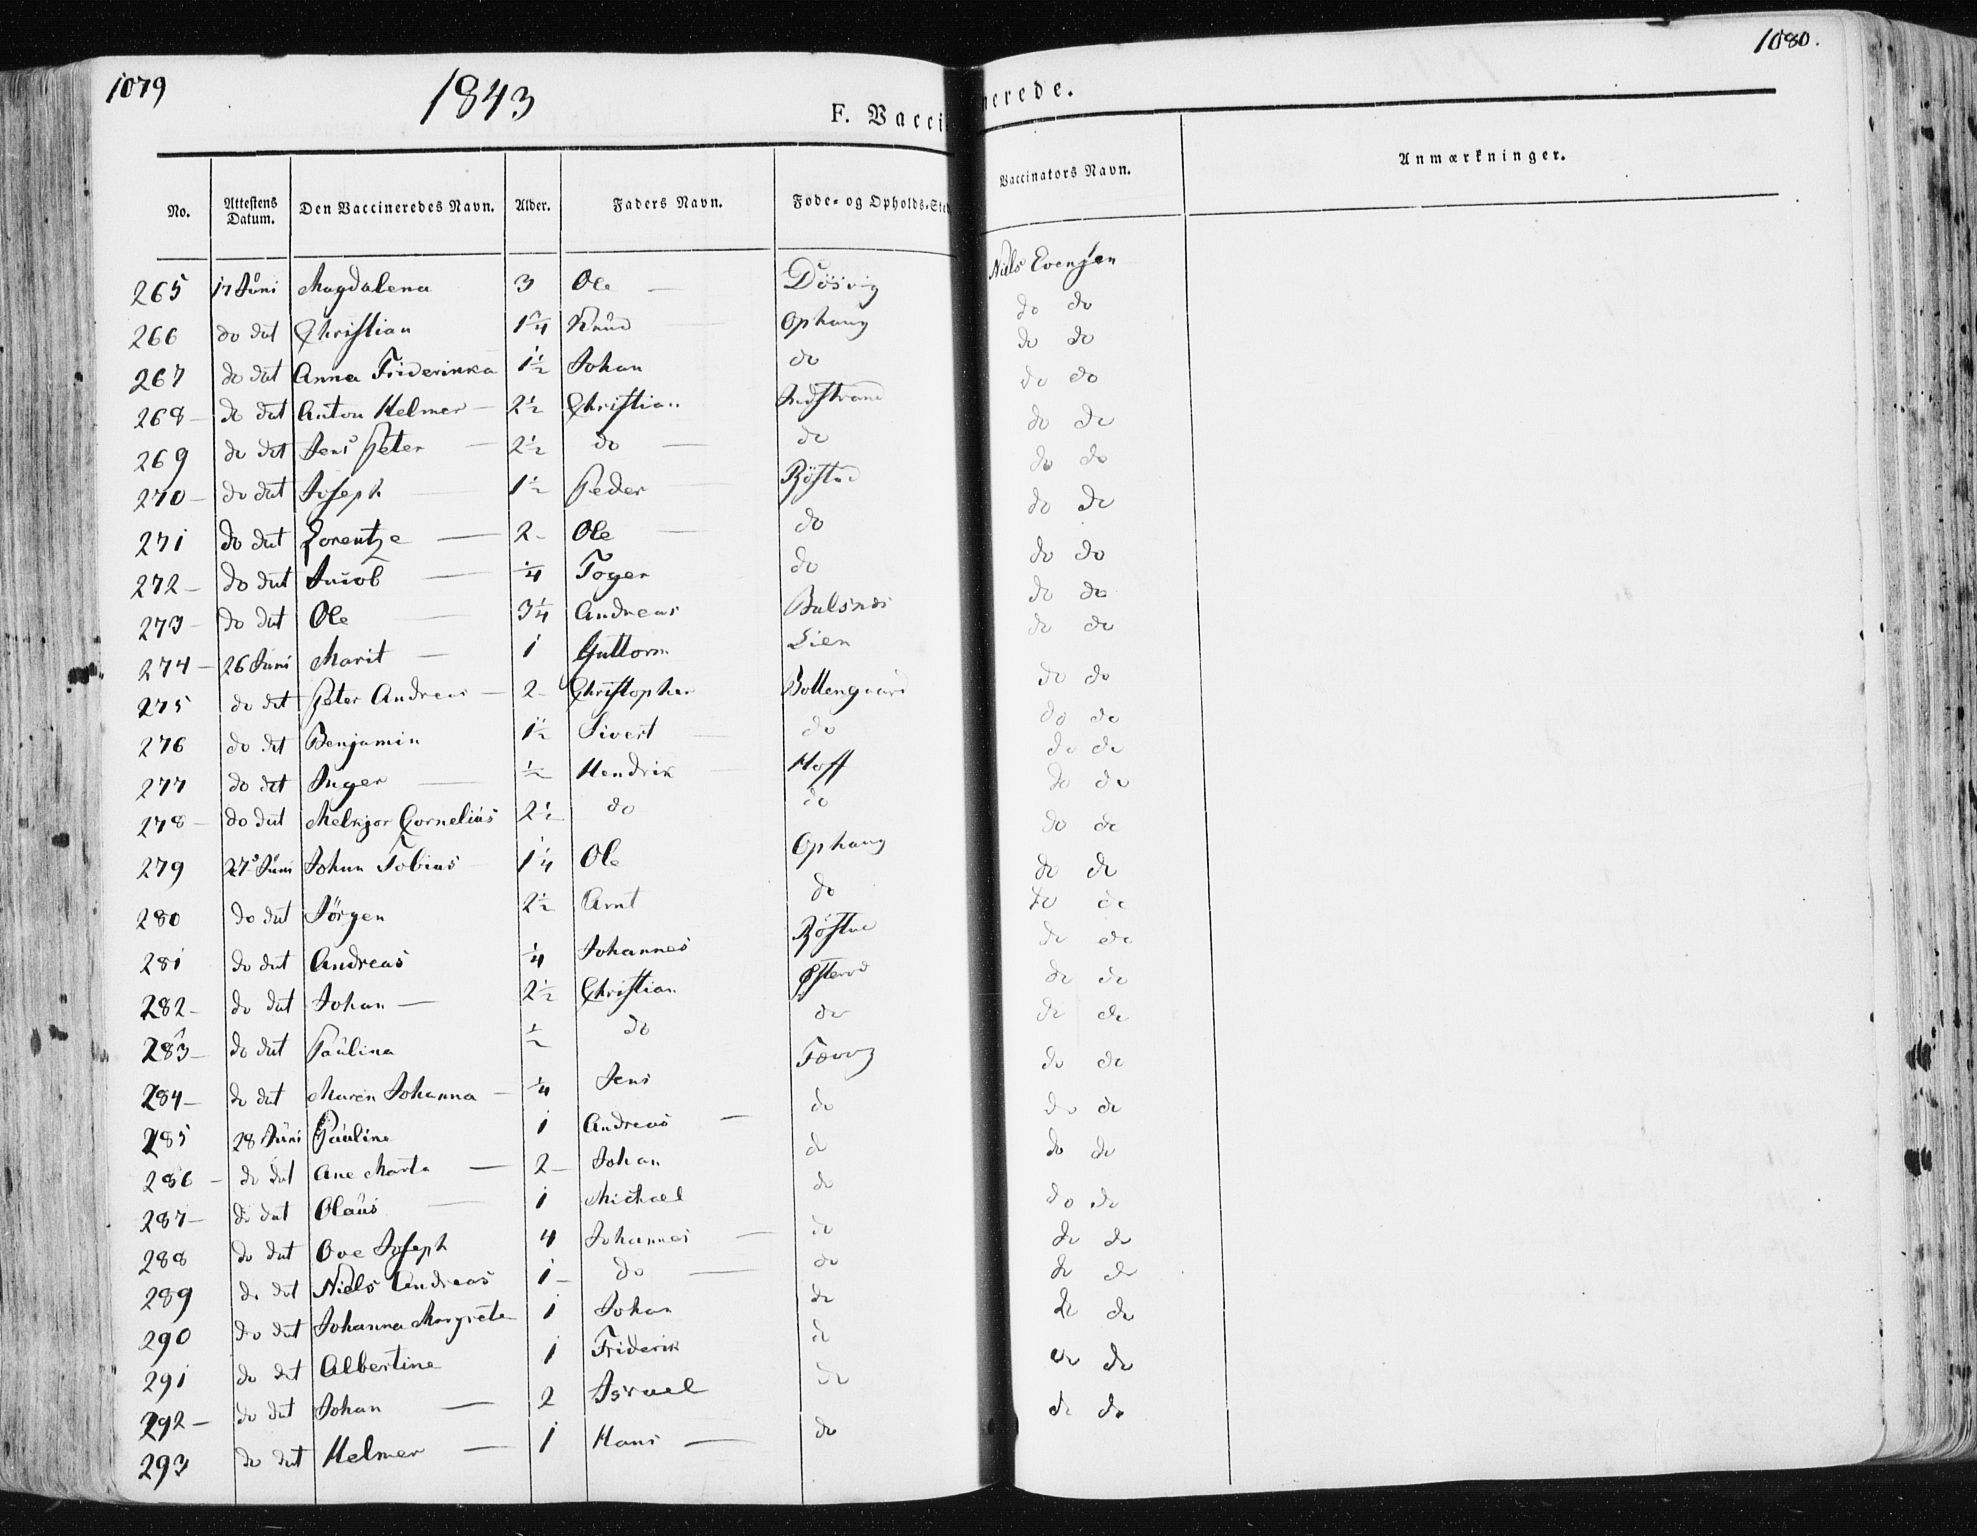 1079
1080.
1843
F. Vacci
nerede.
No. Attestens Datum. Den Vaccineredes Navn. Alder. Faders Navn. Føde- og Opholds-Sted Vaccinators Navn. Anmærkninger.
265 17 Juni Magdalena 3 Ole — Døsvig Niels Evensen
266 do dat Christian 1 3/4 Knud — Ophaug do do
267 do dat Anna Friderikka 1 1/2 Johan do do do
268 – do dat Anton Helmer – 2 1/2 Christian Indstrand do do
269 do dat Jens Peter — 2 1/2 do — do do do
270 – do dat Joseph — 1 1/2 Peder — Røstad do do
271 do dat Lorentze — 2 – Ole — do do do
272 – do dat Jacob — 1/4 Toger do do do
273 – do dat Ole — 3 1/4 Andreas Balsnes do do
274 – 26 Juni Marit — 1 Guttorm Lien do do
275 do dat Peter Andreas — 2 – Christopher Bottengaard do do
276 do dat Benjamin 1 1/2 Sivert — do do do
277 do dat Inger — 1/2 Hendrik — Hoff do do
278 – do dat Melkjor Cornelius 2 1/2 do do do do
279 27 Juni Johan Tobias – 1 1/4 Ole Ophaug do do
280 do dat Jörgen 2 1/2 Arnt do do do
281 do dat Andreas 1/4 Johannes Røstad do do
282 – do dat Johan — 2 1/2 Christian do do
283 – do dat Paulina 1/2 do do do do
284 – do dat Maren Johanna – 1/4 Jens do do
285 28 Juni Pauline 1 Andreas — do do do
286 – do dat Ane Marta — 2 – Johan do do do
287 – do dat Olaus — 1 Michael do do do
288 do dat Ove Joseph 4 Johannes — do do do
289 do dat Niels Andreas 1 – do — do do do
290 do dat Johanna Margrete 1 Johan do do do
291 do dat Albertine 1 Friderik do do do
292 – do dat Johan — 2 Israel do do do
293 do dat Helmer — 1 Hans — do do do